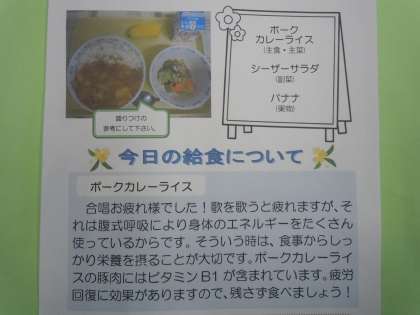 ポーク
カレーライス
(主食・主菜)
シーザーサラダ
(副菜)
バナナ
(果物)
盛りつけの
参考にして下さい。
今日の給食について
ポークカレーライス
合唱お疲れ様でした！歌を歌うと疲れますが、そ
れは腹式呼吸により身体のエネルギーをたくさん
使っているからです。そういう時は、食事からしっ
かり栄養を摂ることが大切です。ポークカレーライ
スの豚肉にはビタミンB1が含まれています。疲労
回復に効果がありますので、残さず食べましょう！